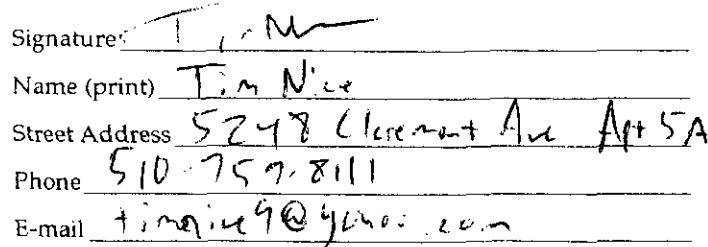 Signature
Name (print) Tim Nice
Street Address 5248 Claremont Ave Apt 5A
Phone 510-757-8111
E-mail timnice9@yahoo.com